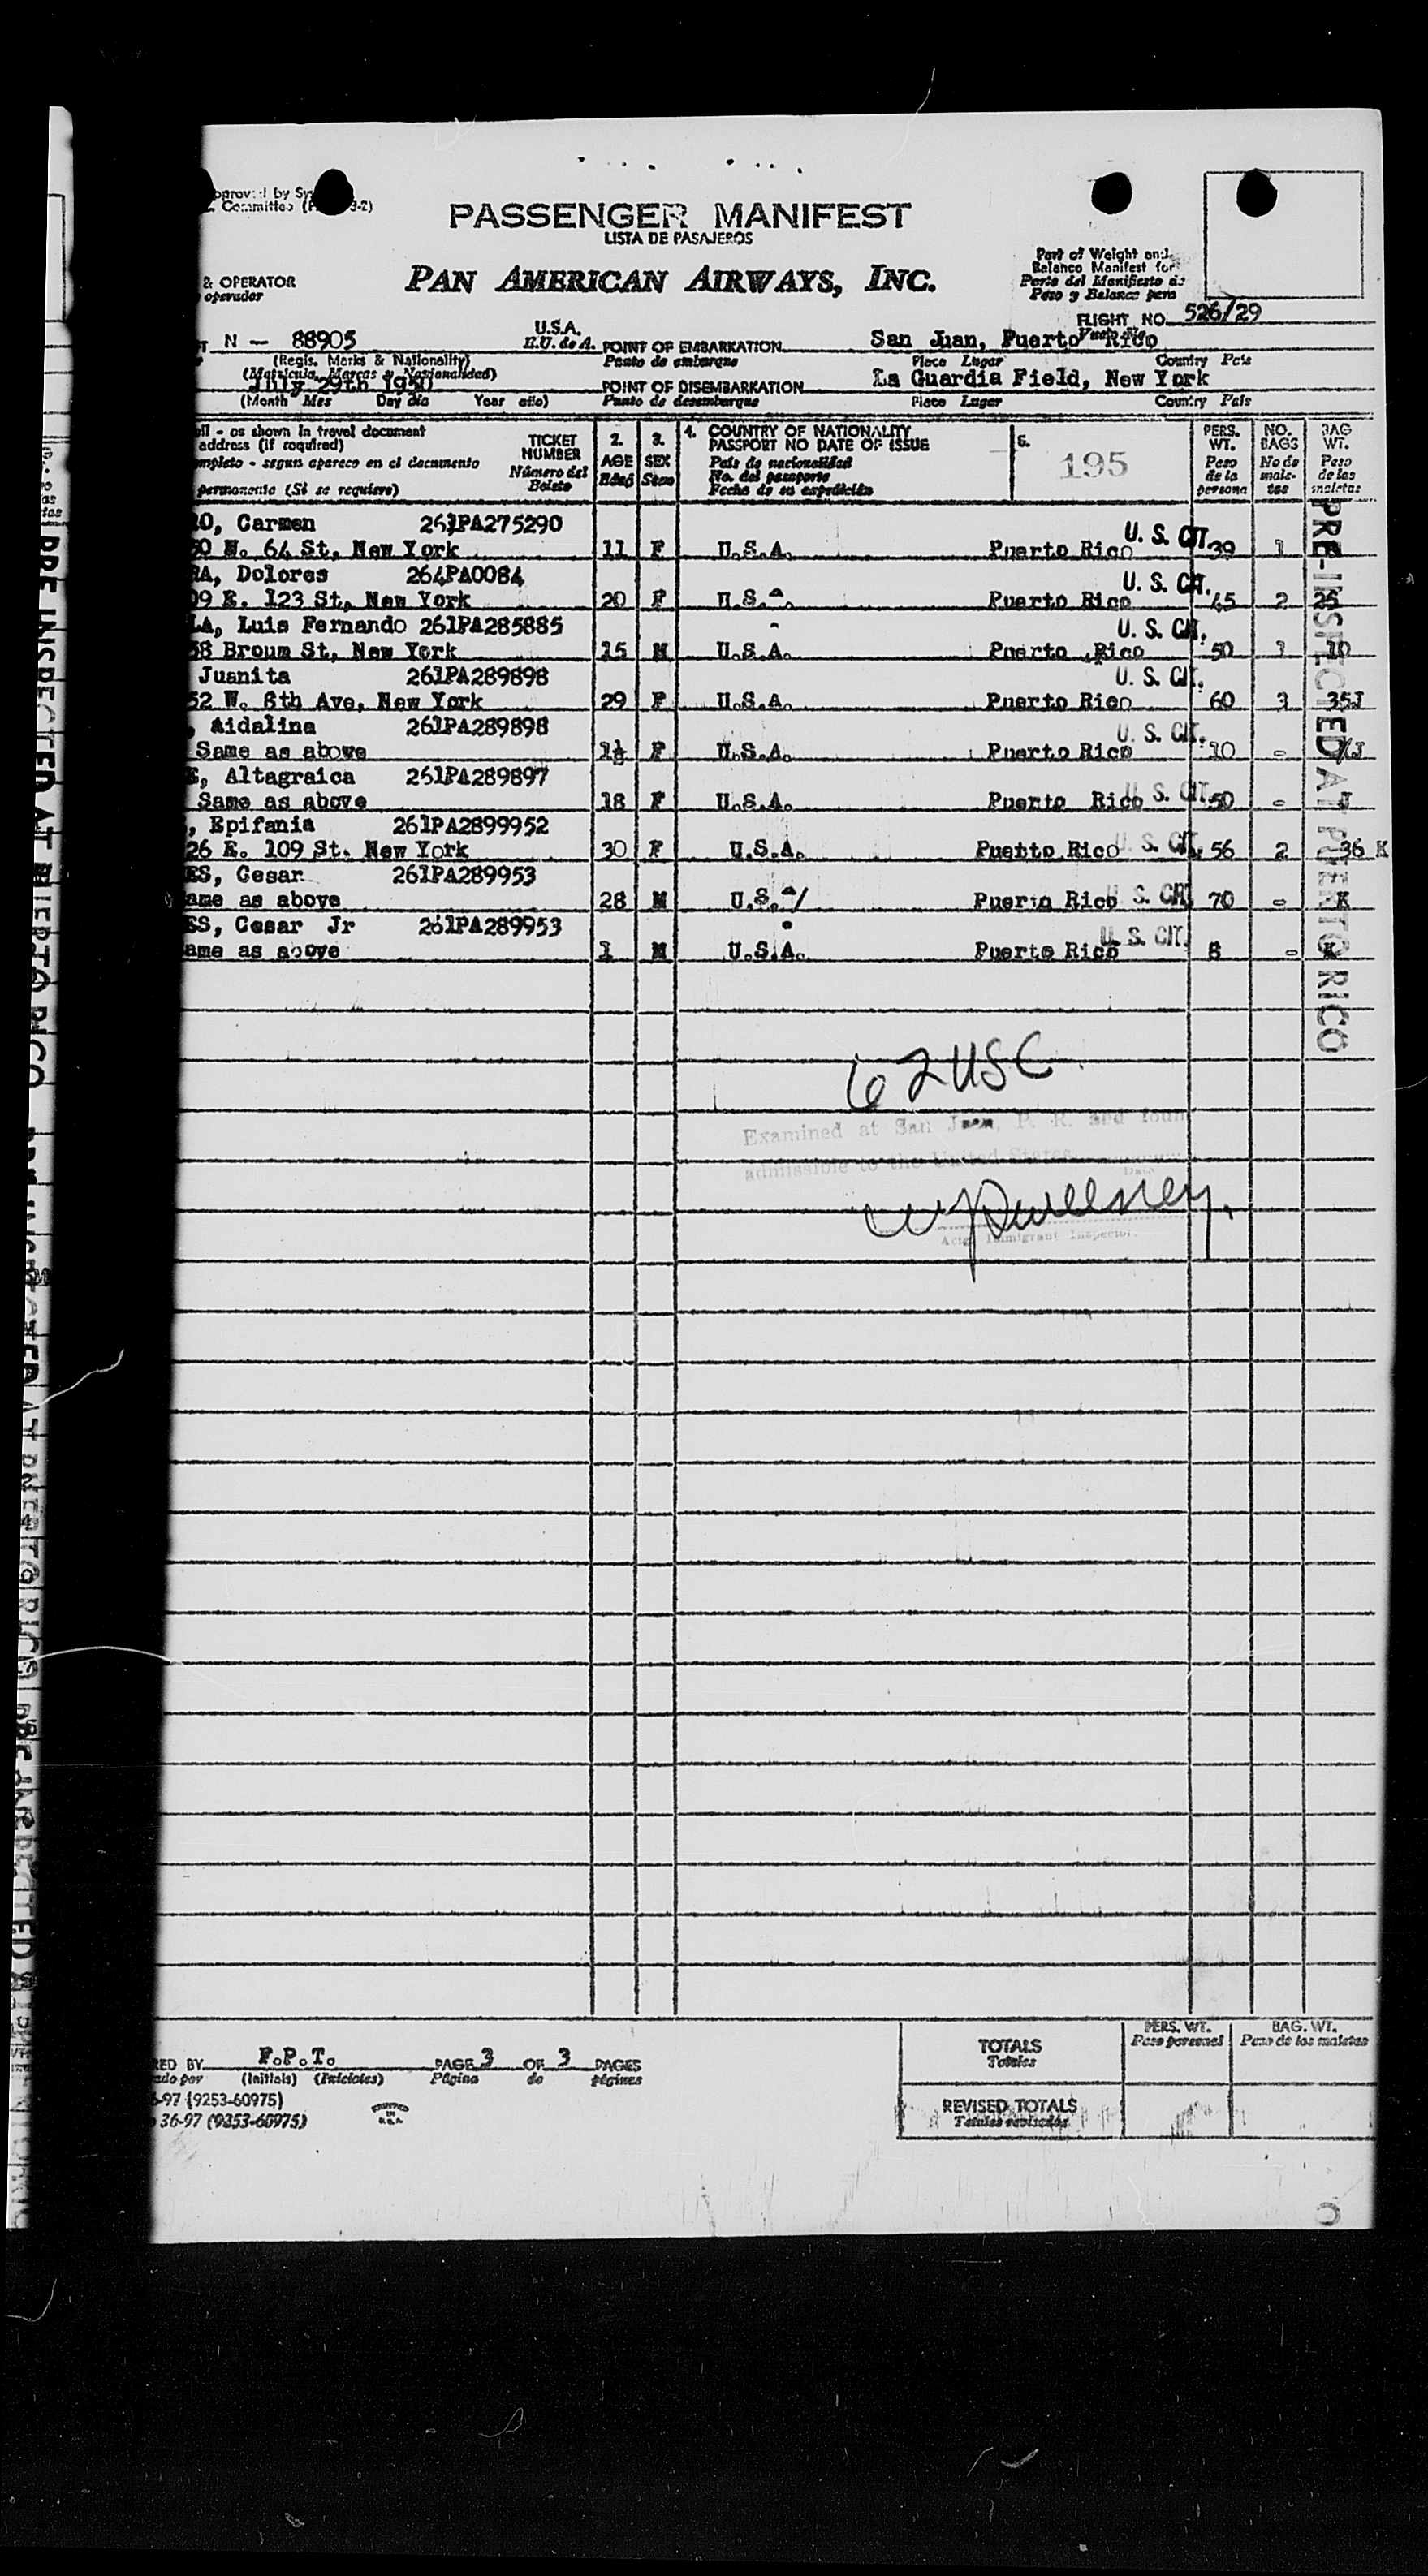 PASSENGER MANIFEST
LISTA DE PASAJEROS
PAN AMERICAN AIRWAYS, INC.
& OPERATOR
operador
Part of Weight and
Balance Manifest for
Parte del Manifiesto de
Peso y Balance para
FLIGHT NO. 526/29
N - 88905 U.S.A.
E.U. de A.
(Regis. Marks & Nationality)
(Matricula, Marcas y Nacionalidad)
POINT OF EMBARKATION San Juan, Puerto Rico
Punto de embarque Place Lugar Country Pais
July 29th 1950
(Month Mes Day dia Year año)
POINT OF DISEMBARKATION La Guardia Field, New York
Punto de desembarque Place Lugar Country Pais
- as shown in travel document
address (if required)
- segun aparece en el documento
permanente (Si se requiere)
TICKET NUMBER
Número del Boleto
2. AGE Edad
3. SEX Sexo
4. COUNTRY OF NATIONALITY
PASSPORT NO DATE OF ISSUE
Pais de nacionalidad
No. del pasaporte
Fecha de su expedición
195
PERS. WT. Peso de la persona
NO. BAGS No de maletas
BAG WT. Peso de las maletas
RO, Carmen 261PA275290 U. S. CIT.
50 N. 64 St, New York 11 F U.S.A. Puerto Rico 39 1
RA, Dolores 264PA0084 U. S. CIT.
09 E. 123 St, New York 20 F U.S.A. Puerto Rico 45 2
LA, Luis Fernando 261PA285885 U. S. CIT.
58 Broum St, New York 15 M U.S.A. Puerto Rico 50 1 10
Juanita 261PA289898 U. S. CIT.
52 W. 8th Ave, New York 29 F U.S.A. Puerto Rico 60 3 35J
, Aidalina 261PA289898 U. S. CIT.
Same as above 1½ F U.S.A. Puerto Rico 10 - J
E, Altagraica 261PA289897
Same as above 18 F U.S.A. Puerto Rico U. S. CIT. 50 - J
, Epifania 261PA2899952
26 E. 109 St. New York 30 F U.S.A. Puetto Rico U. S. CIT. 56 2 36 K
ES, Cesar 261PA289953
ame as above 28 M U.S.A/ Puerto Rico U. S. CIT. 70 - K
ES, Cesar Jr 261PA289953 U. S. CIT.
ame as above 1 M U.S.A. Puerto Rico 8 - K
PRE-INSPECTED AT PUERTO RICO
62 USC
Examined at San Juan, P. R. and found
admissible to the United States
Date
W J Sweeney
Actg. Immigrant Inspector.
RED BY F.P.T. PAGE 3 OF 3 PAGES
(Initials) (Iniciales) Página de páginas
-97 (9253-60975)
36-97 (9253-60975)
PRINTED IN U.S.A.
PERS. WT. Peso personal
BAG. WT. Peso de las maletas
TOTALS
Totales
REVISED TOTALS
Totales revisados